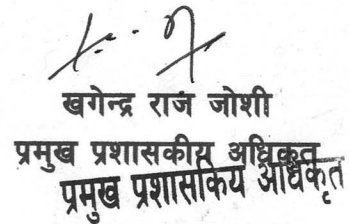 खगेन्द्र राज जोशी
प्रमुख प्रशासकीय अधिकृत
प्रमुख प्रशासकिय अधिकृत